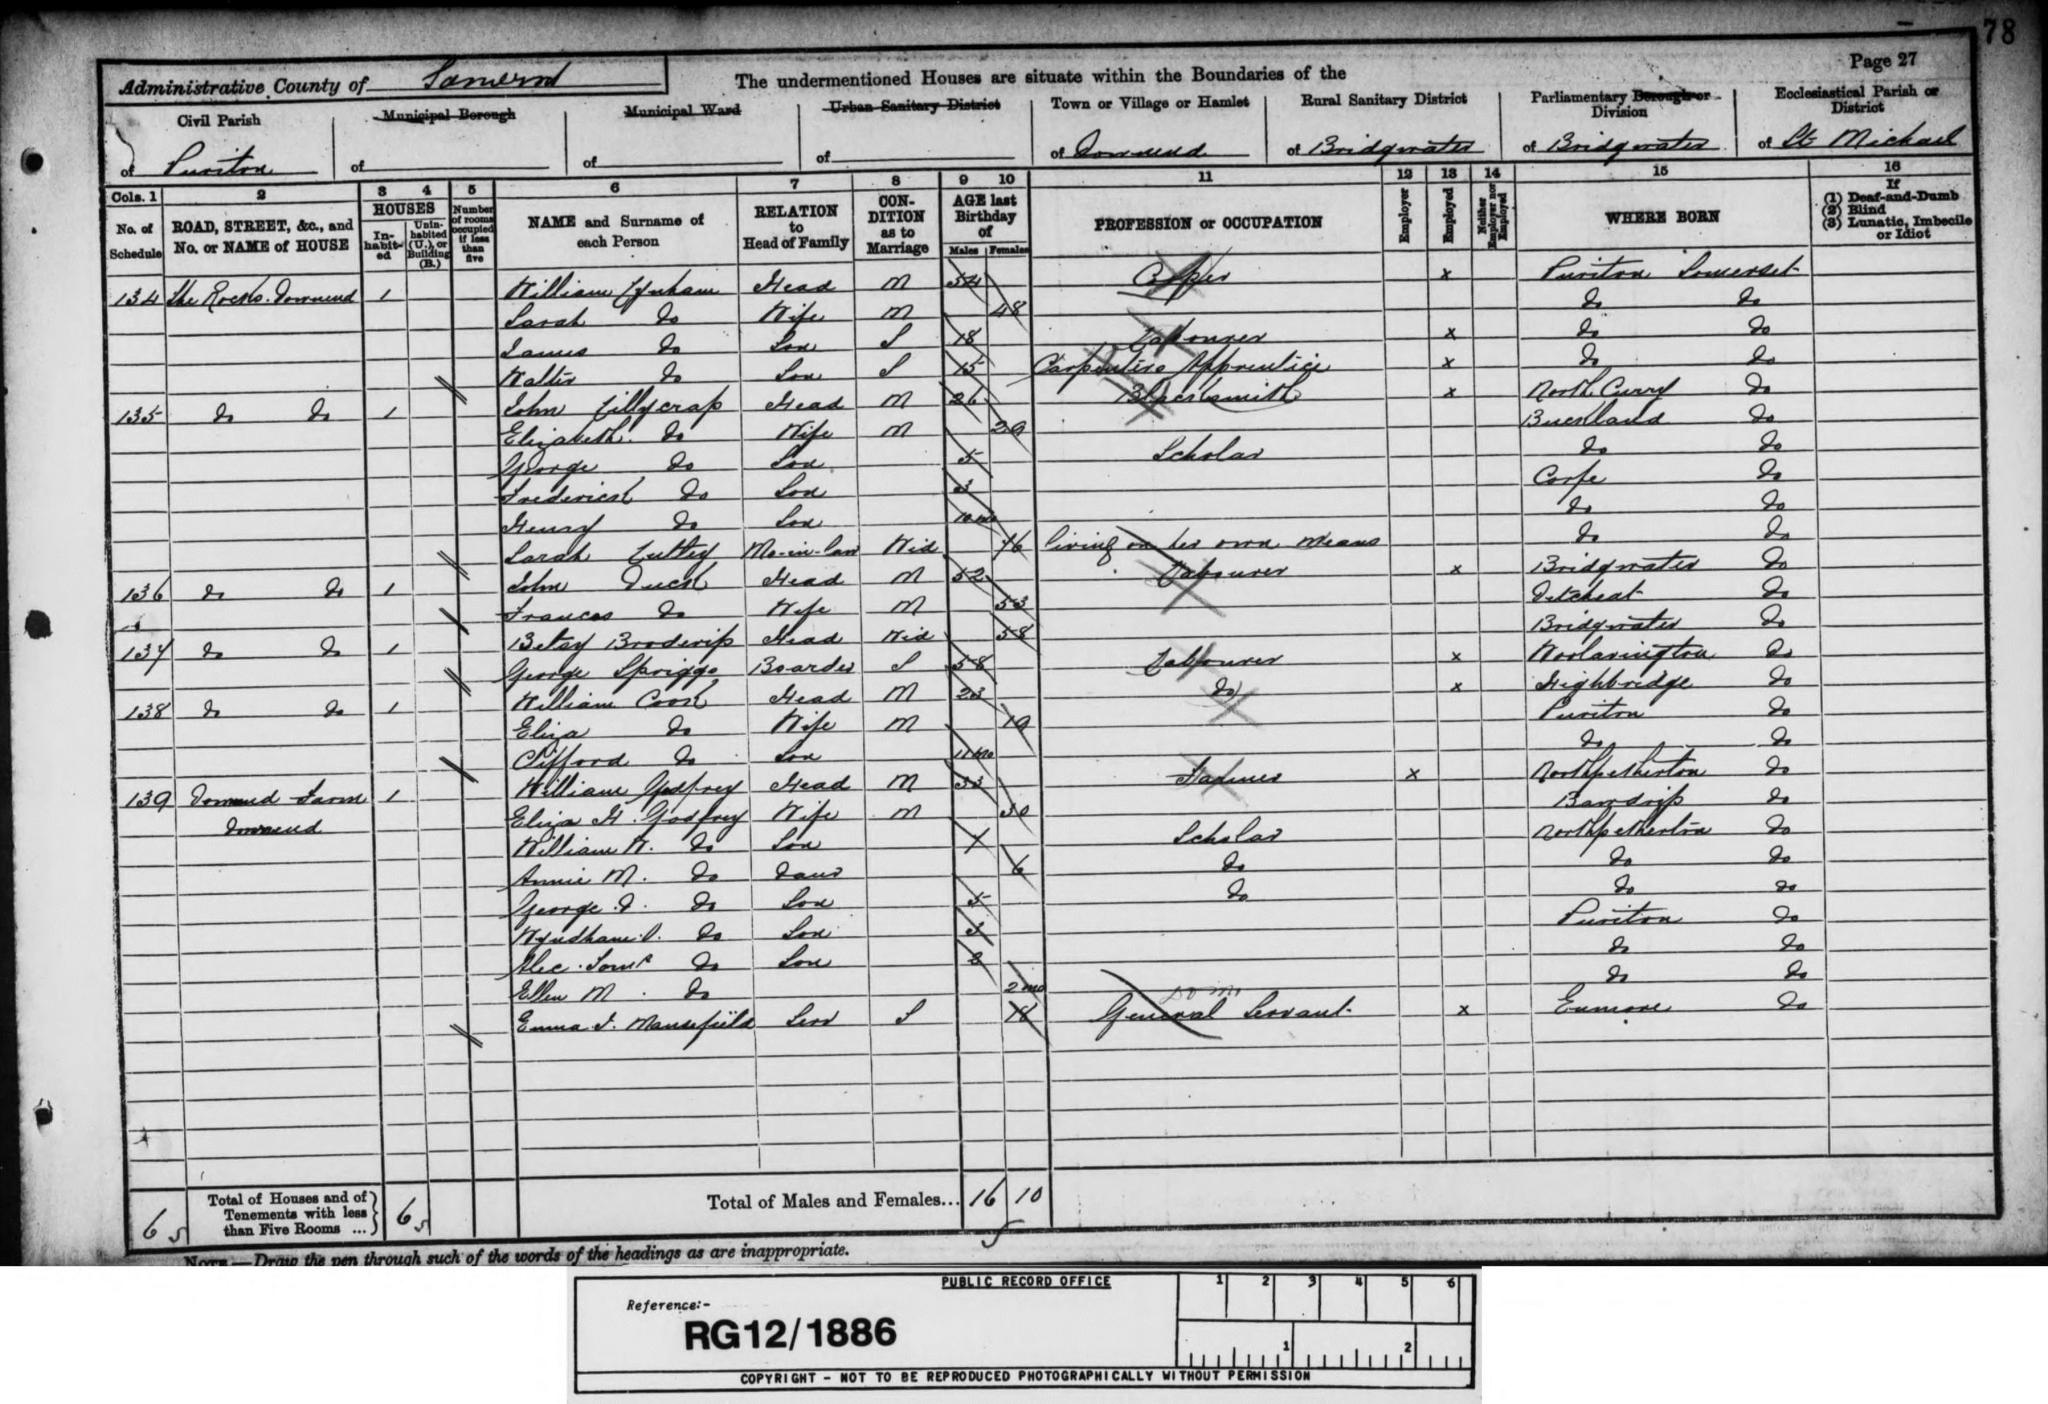 78
Page 27
Administrative County of Somerset
The undermentioned Houses are situate within the Boundaries of the
Civil Parish
of Puriton
Municipal Borough
of
Municipal Ward
of
Urban Sanitary District
of
Town or Village or Hamlet
of Downend
Rural Sanitary District
of Bridgwater
Parliamentary Borough or Division
of Bridgwater
Ecclesiastical Parish or District
of St Michael
Cols. 1 2 3 4 5 6 7 8 9 10 11 12 13 14 15 16
No. of Schedule
ROAD, STREET, &c., and No. or NAME of HOUSE
HOUSES
Inhabited
Uninhabited (U.), or Building (B.)
Number of rooms occupied if less than five
NAME and Surname of each Person
RELATION to Head of Family
CONDITION as to Marriage
AGE last Birthday of
Males Females
PROFESSION or OCCUPATION
Employer
Employed
Neither Employer nor Employed
WHERE BORN
If
(1) Deaf-and-Dumb
(2) Blind
(3) Lunatic, Imbecile or Idiot
134 The Rocks Downend 1 William Head M 54 x Puriton Somerset
Sarah Do Wife M 48 Do Do
James Do Son S 18 Labourer x Do Do
Walter Do Son S 15 Carpenters Apprentice x Do Do
135 Do Do 1 John Tillycrap Head M 26 Blacksmith x North Curry Do
Elizabeth Do Wife M 29 Buckland Do
George Do Son 5 Scholar Do Do
Frederick Do Son 3 Corfe Do
Henry Do Son 10 mo Do Do
Sarah Mo-in-law Wid 76 living on her own means Do Do
136 Do Do 1 John Duck Head M 52 Labourer x Bridgwater Do
Frances Do Wife M 53 Ditcheat Do
137 Do Do 1 Betsy Broderip Head Wid 58 Bridgwater Do
George Spriggs Boarder S 58 Labourer x Woolavington Do
138 Do Do 1 William Cook Head M 23 Do x Highbridge Do
Eliza Do Wife M 19 Puriton Do
Clifford Do Son 11 mo Do Do
139 Downend Farm 1 William Godfrey Head M 33 Farmer x Northpetherton Do
Downend Eliza H. Godfrey Wife M 30 Bawdrip Do
William W. Do Son 7 Scholar Northpetherton Do
Annie M. Do Daur 6 Do Do Do
George D. Do Son 5 Do Do Do
Wyndham Do Son 3 Puriton Do
Alec Do Son 2 Do Do
Ellen M. Do 2 mo Do Do
Emma J. Mansefield Serv S 18 General Servant x Enmore Do
6 5 Total of Houses and of Tenements with less than Five Rooms ... 6 5 Total of Males and Females... 16 10
5
NOTE.—Draw the pen through such of the words of the headings as are inappropriate.
PUBLIC RECORD OFFICE
1 2 3 4 5 6
Reference:-
RG12/1886
1 2
COPYRIGHT - NOT TO BE REPRODUCED PHOTOGRAPHICALLY WITHOUT PERMISSION